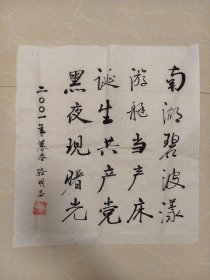 南湖碧波漾
游艇当产床
诞生共产党
黑夜现曙光
二〇〇一年暮春